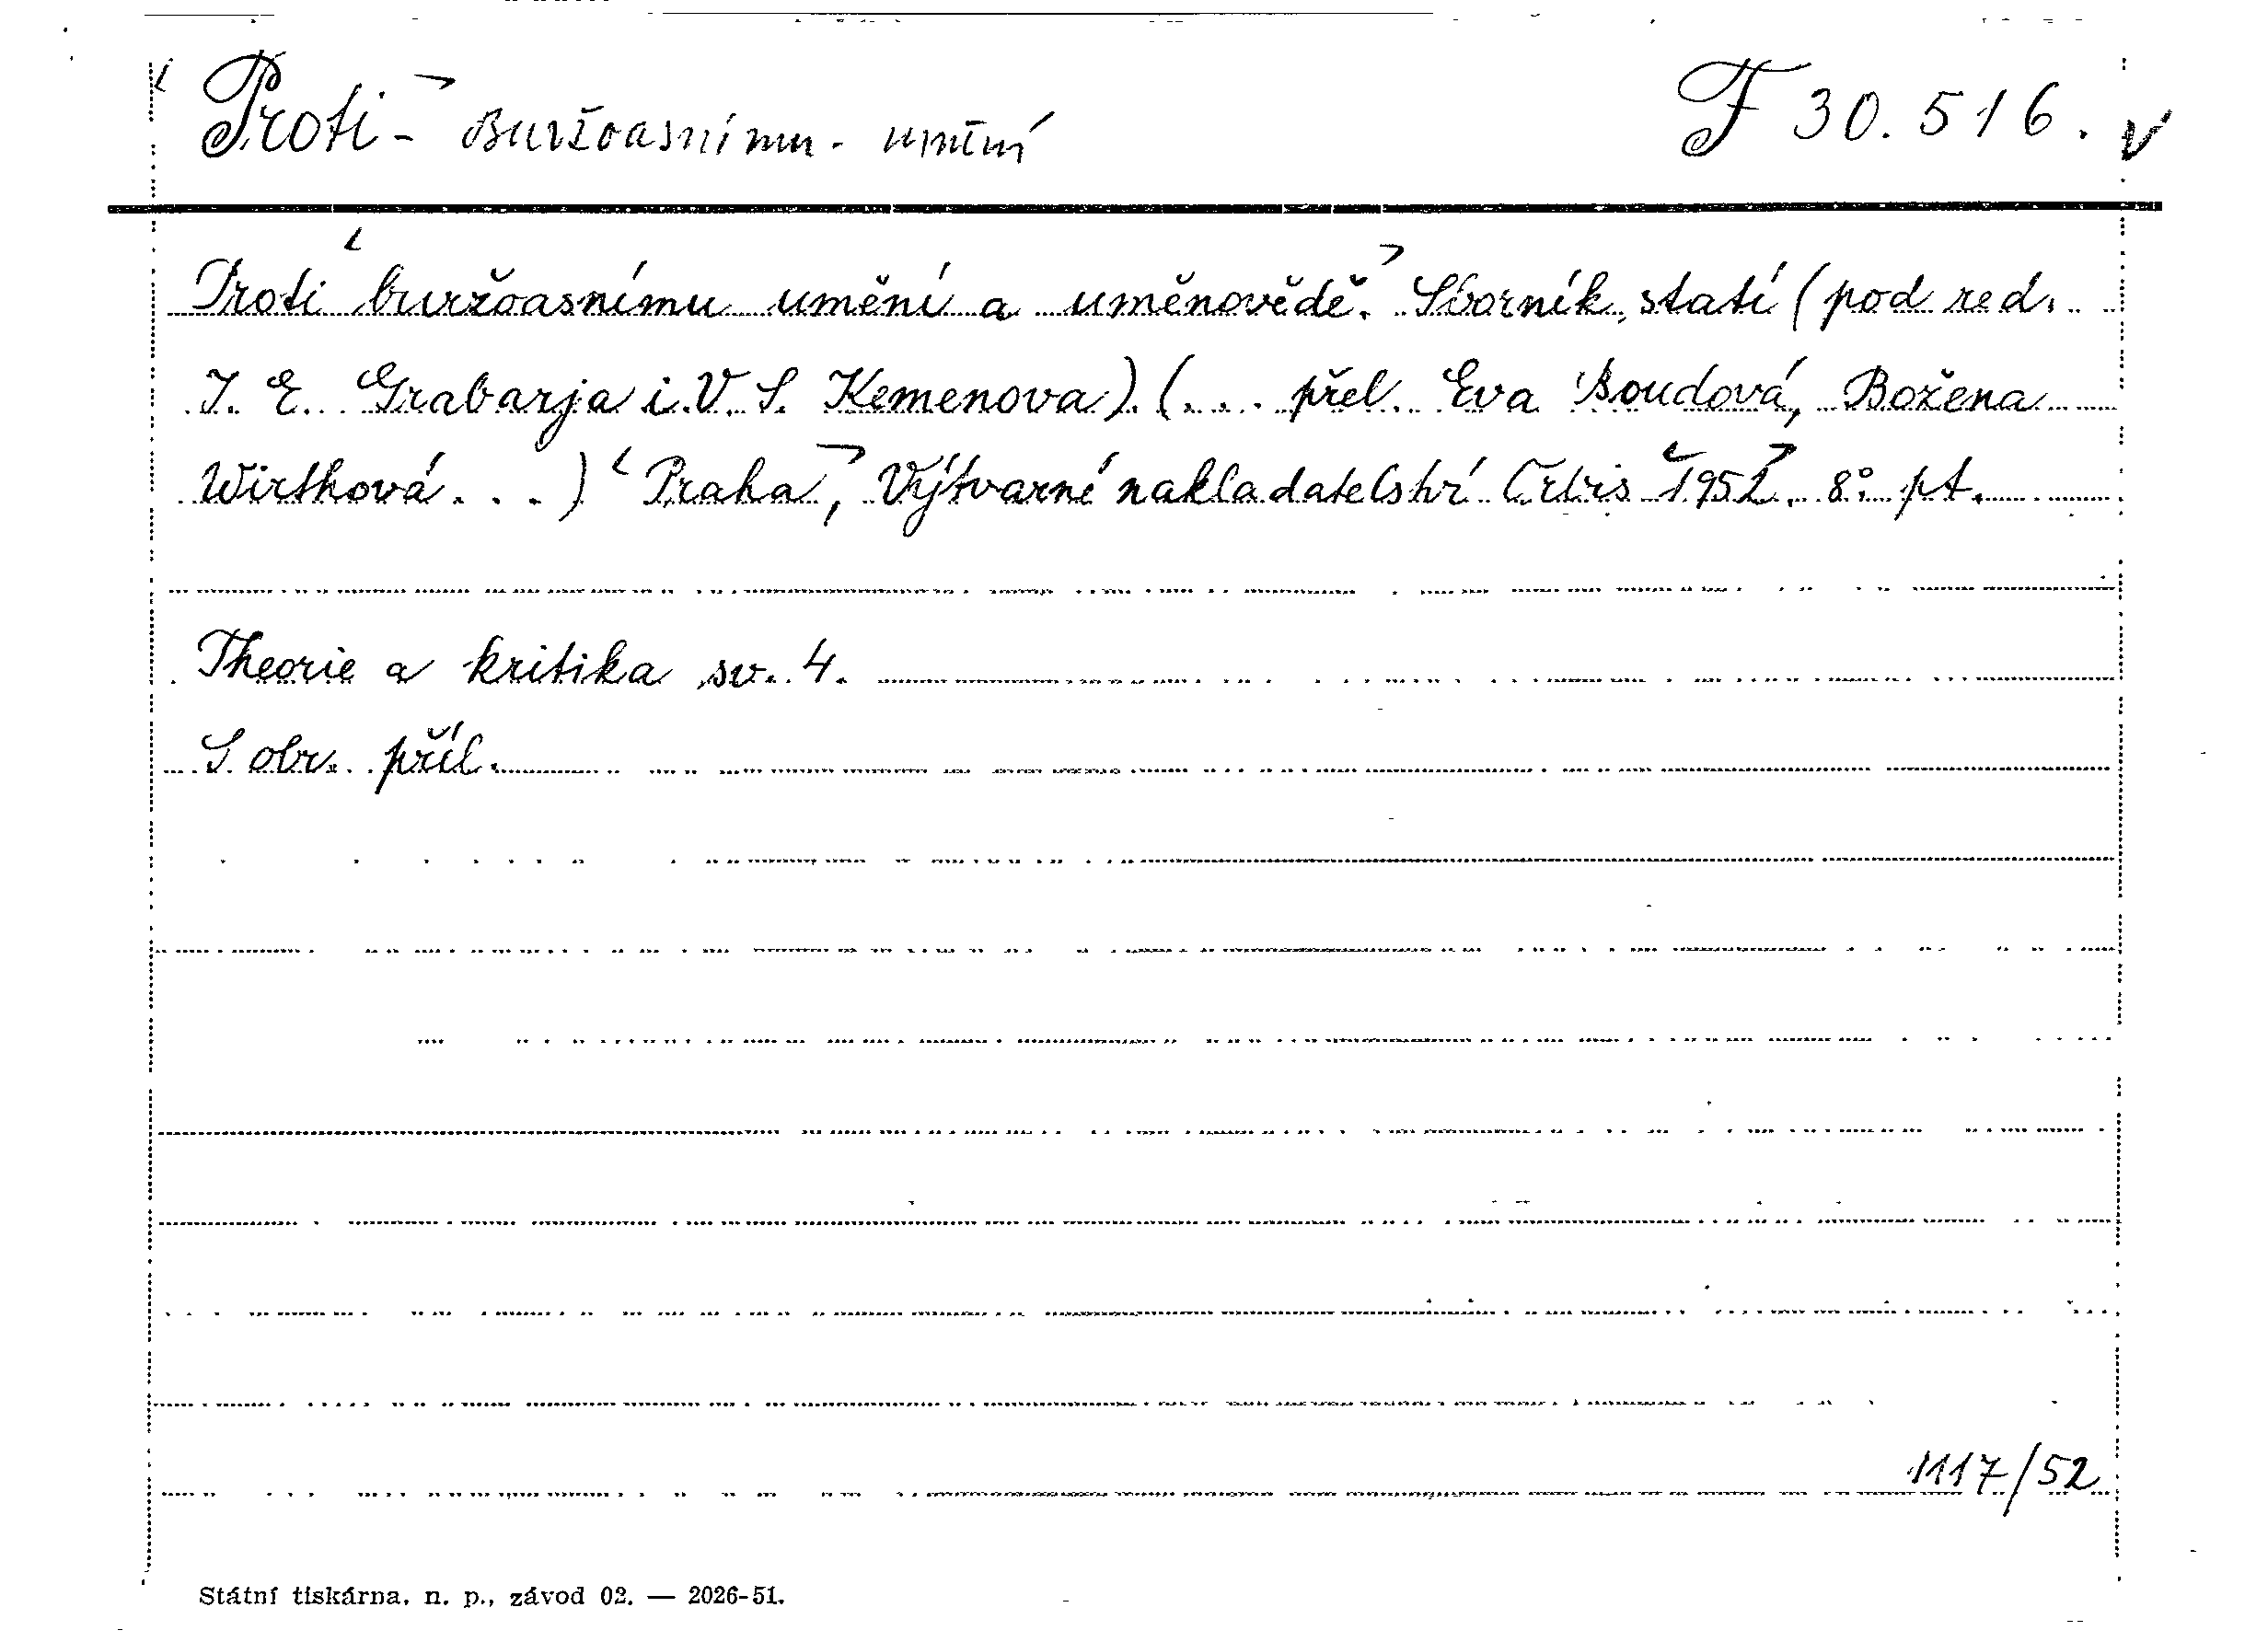 Proti - Buržoasnímu - umění F 30.516.
Proti buržoasnímu umění a uměnovědě. Sborník statí (pod red.
I. E. Grabarja i V. S. Kemenova) (... přel. Eva Boudová, Božena
Wirthová...) Praha, Výtvarné nakladatelství Orbis 1952. 8° pt.
Theorie a kritika sv. 4.
S obr. příl.
1117/52
Státní tiskárna, n. p., závod 02. — 2026-51.